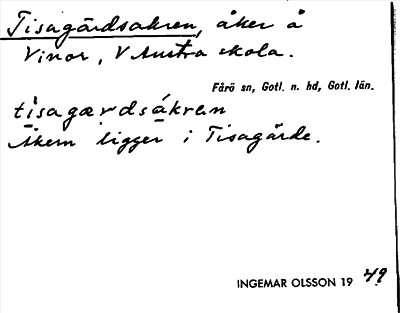 Tisagärdsakren, åker å
Vinor, V Austra skola.
Fårö sn, Gotl. n. hd, Gotl. län.
tisagærdsákren
Åkern ligger i Tisagärde.
INGEMAR OLSSON 19 49